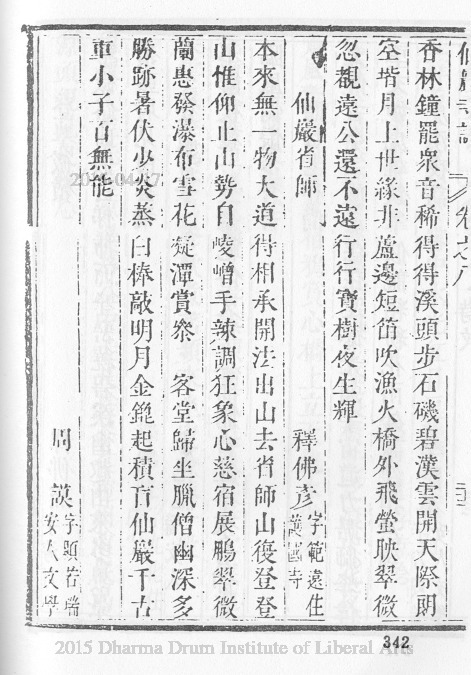 仙巖寺誌 卷之八
香林鐘罷衆音稀得得溪頭步石磯碧漢雲開天際朗
空堦月上世緣非蘆邊短笛吹漁火橋外飛螢映翠微
忽覩遠公還不遠行行寶樹夜生輝
仙巖省師 釋佛彥字範遠住護國寺
本來無一物大道得相承開法出山去省師山復登登
山惟仰止山勢自崚嶒手辣調狂象心慈宿展鵬翠微
蘭惠發瀑布雪花凝潭賞叅 客堂歸坐臘僧幽深多
勝跡暑伏少炎蒸白棒敲明月金篦起積盲仙巖千古
重小子百無能
周 謨字顯若瑞安人文學
342
2017-04-17
2015 Dharma Drum Institute of Liberal Arts